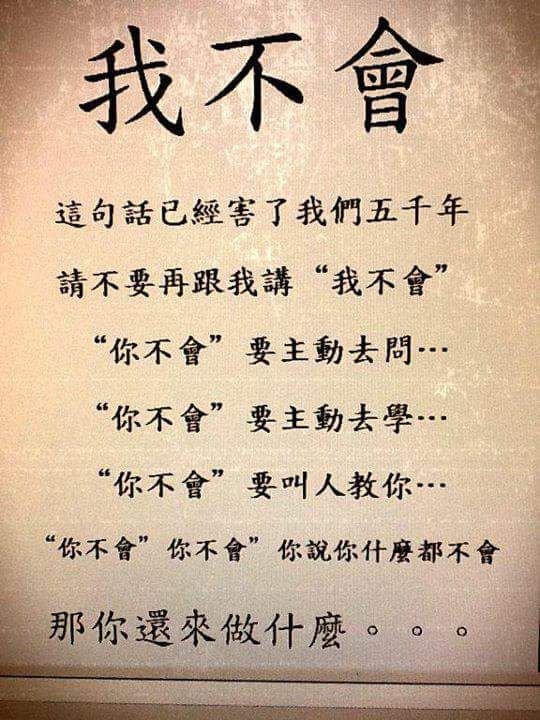 我不會
這句話已經害了我們五千年
請不要再跟我講“我不會”
“你不會”要主動去問…
“你不會”要主動去學…
“你不會”要叫人教你…
“你不會”你不會”你說你什麼都不會
那你還來做什麼。。。